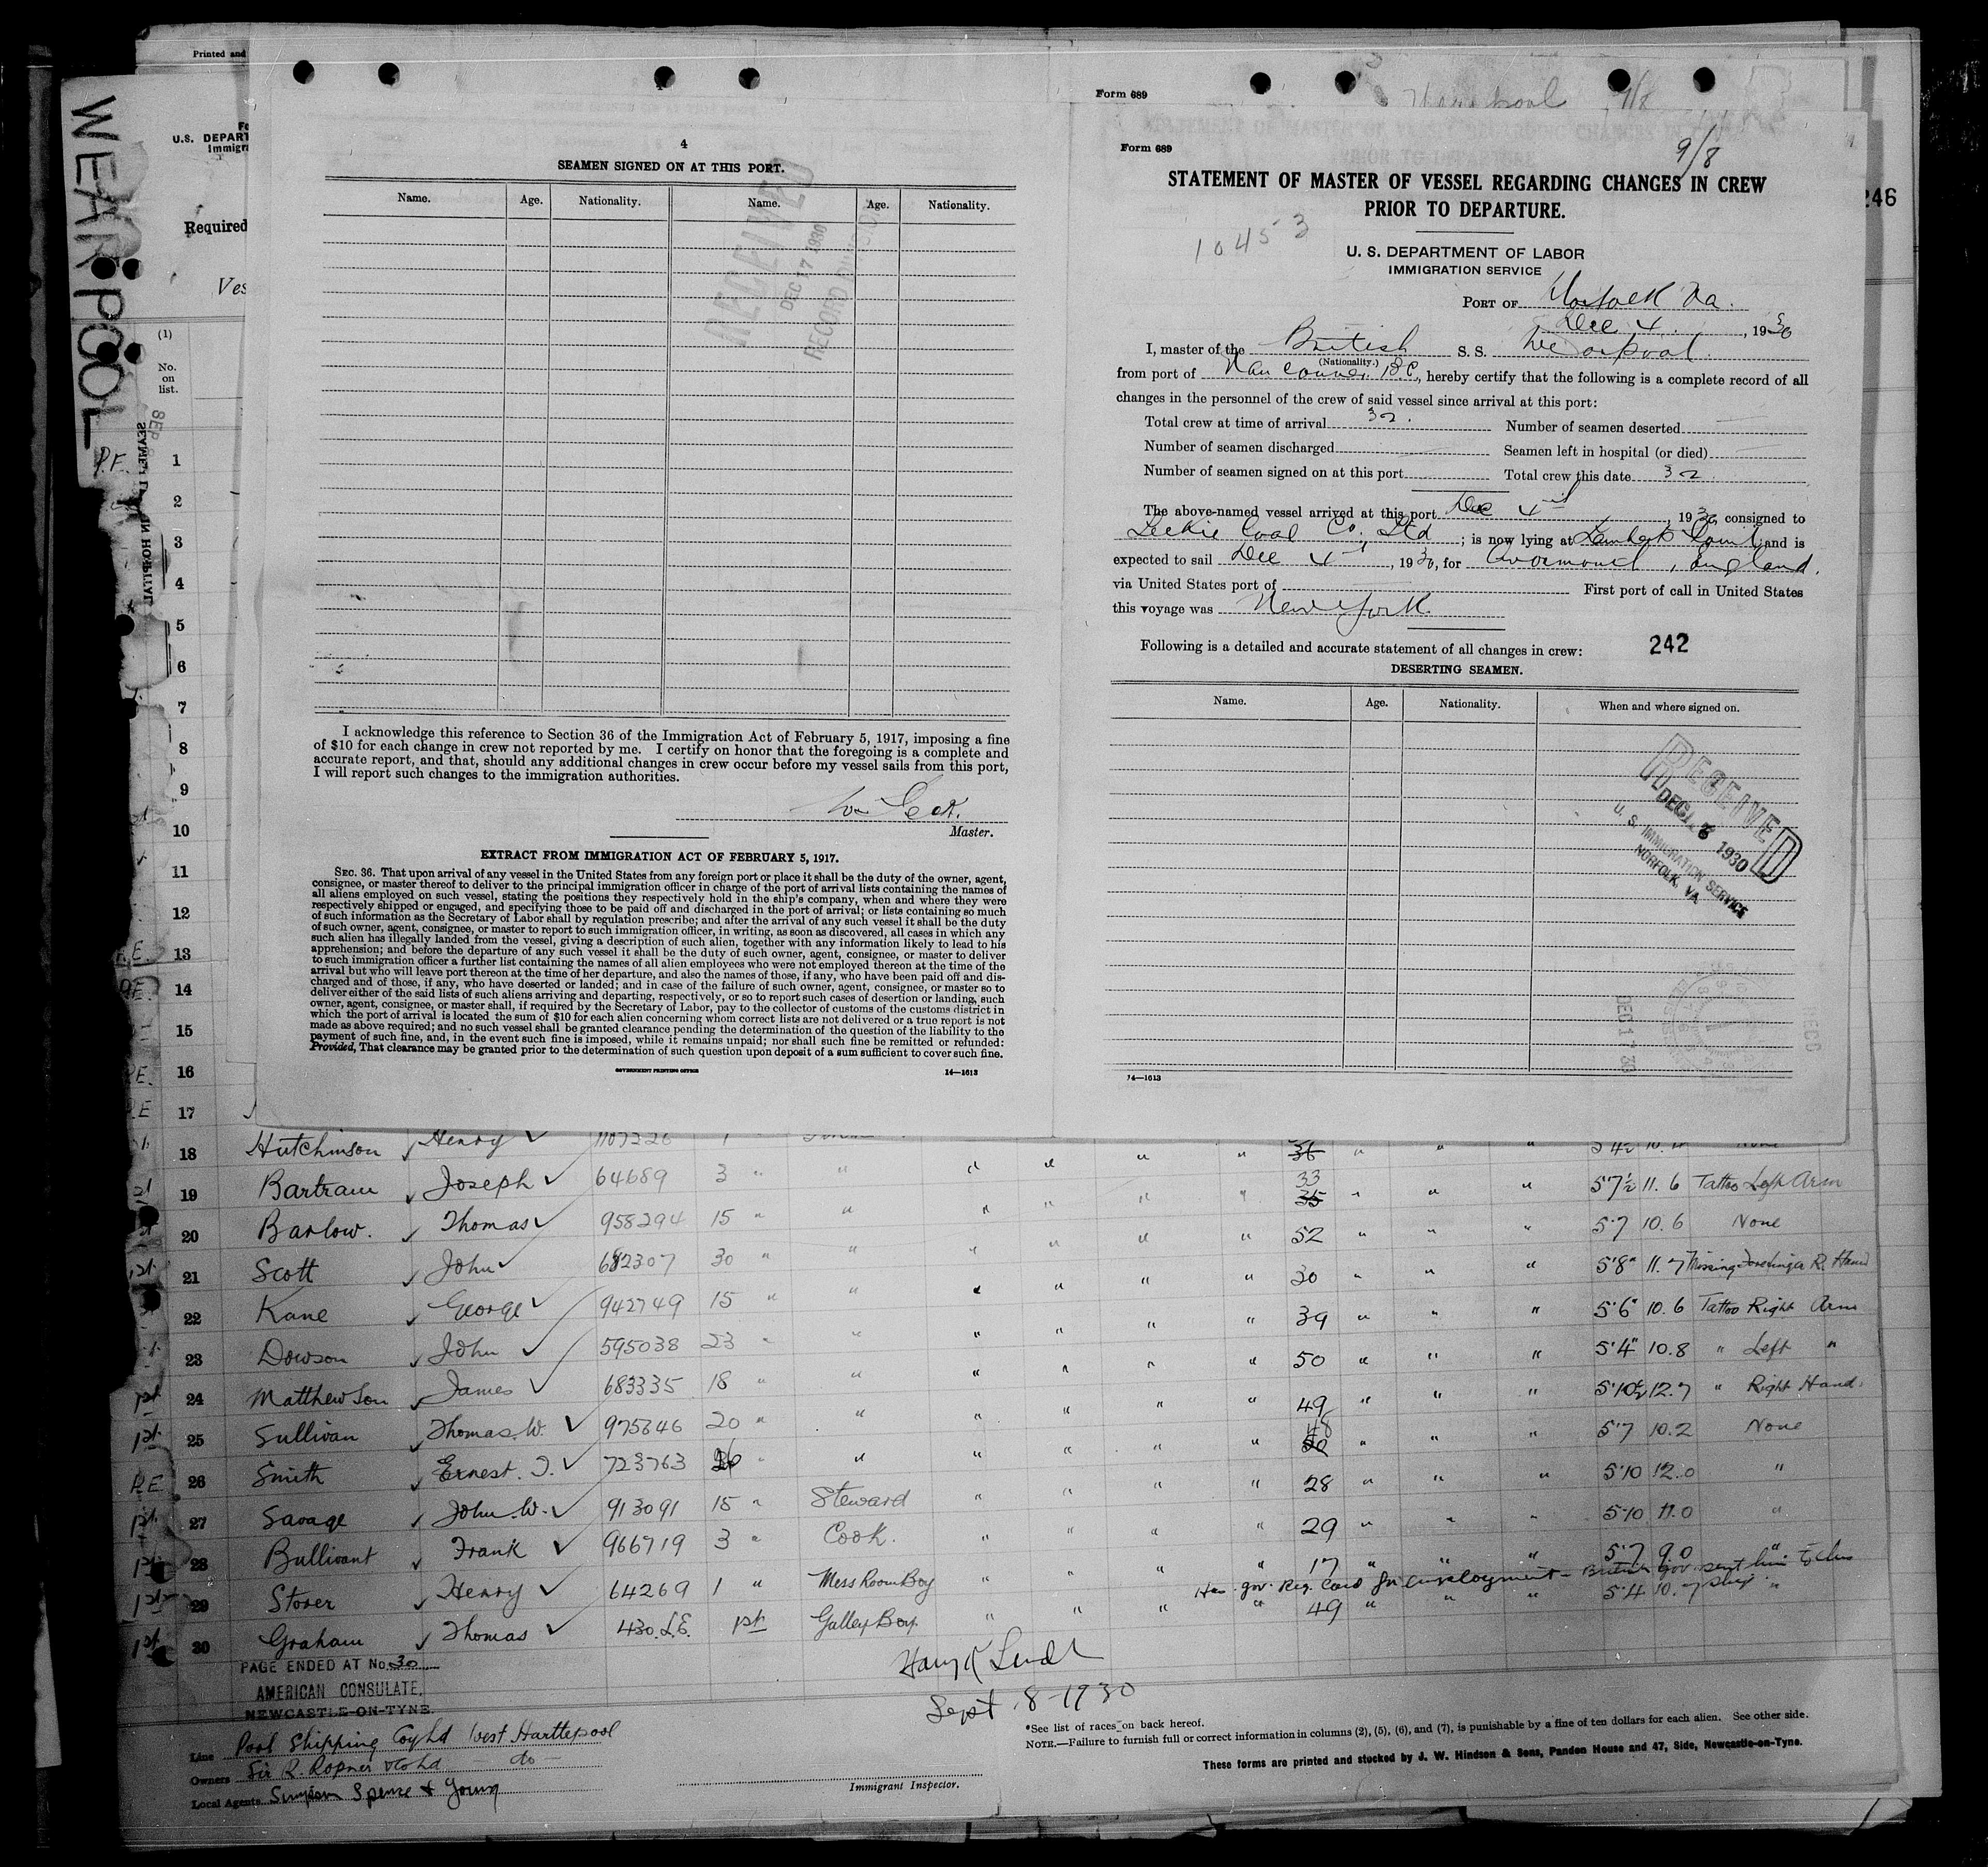 WEARPOOL
Printed and
U.S. DEPART
Immigra
Required
Ves
(1)
No.
on
list.
SEAMEN L IN HOSPITAL
246
4
SEAMEN SIGNED ON AT THIS PORT.
Name. Age. Nationality. Name. Age. Nationality.
RECEIVED
DEC 17 1930
RECORD DIVISION
I acknowledge this reference to Section 36 of the Immigration Act of February 5, 1917, imposing a fine
of $10 for each change in crew not reported by me. I certify on honor that the foregoing is a complete and
accurate report, and that, should any additional changes in crew occur before my vessel sails from this port,
I will report such changes to the immigration authorities.
Master.
EXTRACT FROM IMMIGRATION ACT OF FEBRUARY 5, 1917.
SEC. 36. That upon arrival of any vessel in the United States from any foreign port or place it shall be the duty of the owner, agent,
consignee, or master thereof to deliver to the principal immigration officer in charge of the port of arrival lists containing the names of
all aliens employed on such vessel, stating the positions they respectively hold in the ship's company, when and where they were
respectively shipped or engaged, and specifying those to be paid off and discharged in the port of arrival; or lists containing so much
of such information as the Secretary of Labor shall by regulation prescribe; and after the arrival of any such vessel it shall be the duty
of such owner, agent, consignee, or master to report to such immigration officer, in writing, as soon as discovered, all cases in which any
such alien has illegally landed from the vessel, giving a description of such alien, together with any information likely to lead to his
apprehension; and before the departure of any such vessel it shall be the duty of such owner, agent, consignee, or master to deliver
to such immigration officer a further list containing the names of all alien employees who were not employed thereon at the time of the
arrival but who will leave port thereon at the time of her departure, and also the names of those, if any, who have been paid off and dis-
charged and of those, if any, who have deserted or landed; and in case of the failure of such owner, agent, consignee, or master so to
deliver either of the said lists of such aliens arriving and departing, respectively, or so to report such cases of desertion or landing, such
owner, agent, consignee, or master shall, if required by the Secretary of Labor, pay to the collector of customs of the customs district in
which the port of arrival is located the sum of $10 for each alien concerning whom correct lists are not delivered or a true report is not
made as above required; and no such vessel shall be granted clearance pending the determination of the question of the liability to the
payment of such fine, and, in the event such fine is imposed, while it remains unpaid; nor shall such fine be remitted or refunded:
Provided, That clearance may be granted prior to the determination of such question upon deposit of a sum sufficient to cover such fine.
GOVERNMENT PRINTING OFFICE 14—1613
Form 689
Form 689
9/8
STATEMENT OF MASTER OF VESSEL REGARDING CHANGES IN CREW
PRIOR TO DEPARTURE.
10453
U. S. DEPARTMENT OF LABOR
IMMIGRATION SERVICE
PORT OF Norfolk Va.
Dec 4, 1930
I, master of the British S. S. Wearpool
(Nationality.)
from port of Vancouver BC, hereby certify that the following is a complete record of all
changes in the personnel of the crew of said vessel since arrival at this port:
Total crew at time of arrival 32. Number of seamen deserted —
Number of seamen discharged — Seamen left in hospital (or died) —
Number of seamen signed on at this port — Total crew this date 32.
The above-named vessel arrived at this port Dec 4, 1930, consigned to
Leckie Coal Co. Ltd; is now lying at Lamberts Point and is
expected to sail Dec 4, 1930, for Avonmouth, England.
via United States port of — First port of call in United States
this voyage was New York
Following is a detailed and accurate statement of all changes in crew: 242
DESERTING SEAMEN.
Name. Age. Nationality. When and where signed on.
RECEIVED
DEC 1930
U. S. IMMIGRATION SERVICE
NORFOLK, VA
DEC 17 30
14—1613
P.E. 1
2
3
4
5
6
7
8
9
10
11
12
P.E. 13
P.E. 14
15
P.E. 16
P.E 17
18 Hutchinson Henry 1107326 1 " 36 " " " None
19 Bartram Joseph 64689 3 " " " " " " 33 35 " " " 5'7½ 11.6 Tattoo Left Arm
20 Barlow. Thomas 958294 15 " " " " " " 52 " " " 5'7 10.6 None
1st 21 Scott John 682307 30 " " " " " " 30 " " " 5'8" 11.7 Missing Forefinger R. Hand
22 Kane George 942749 15 " " " " " " 39 " " " 5'6" 10.6 Tattoo Right Arm
23 Dowson John 595038 23 " " " " " " 50 " " " 5'4" 10.8 " Left "
1st 24 Matthewson James 683335 18 " " " " " " 49 " " " 5'10½ 12.7 " Right Hand.
1st 25 Sullivan Thomas. W. 975846 20 " " " " " " 48 50 " " " 5'7 10.2 None
P.E 26 Smith Ernest. J. 723763 26 " " " " " " 28 " " " 5'10 12.0 "
1st 27 Savage John. W. 913091 15 " Steward " " " " 29 " " " 5'10 11.0 "
1st 28 Bullivant Frank 966719 3 " Cook. " " " " 17 " " " 5'7 9.0 "
Has gov. Reg. Card for employment - British gov. sent him to this ship
1st 29 Storer Henry 64269 1 " Mess Room Boy " " " " 49 " " " 5'4 10.7 "
1st 30 Graham Thomas 430.L.E. 1st Galley Boy.
PAGE ENDED AT No. 30
AMERICAN CONSULATE,
NEWCASTLE-ON-TYNE.
Sept 8-1930
Line Pool Shipping Coy Ltd West Hartlepool
Owners Sir R. Ropner & Co Ltd. do —
Local Agents Simpson Spence & Young
Immigrant Inspector.
*See list of races on back hereof.
NOTE.—Failure to furnish full or correct information in columns (2), (5), (6), and (7), is punishable by a fine of ten dollars for each alien. See other side.
These forms are printed and stocked by J. W. Hindson & Sons, Pandon House and 47, Side, Newcastle-on-Tyne.